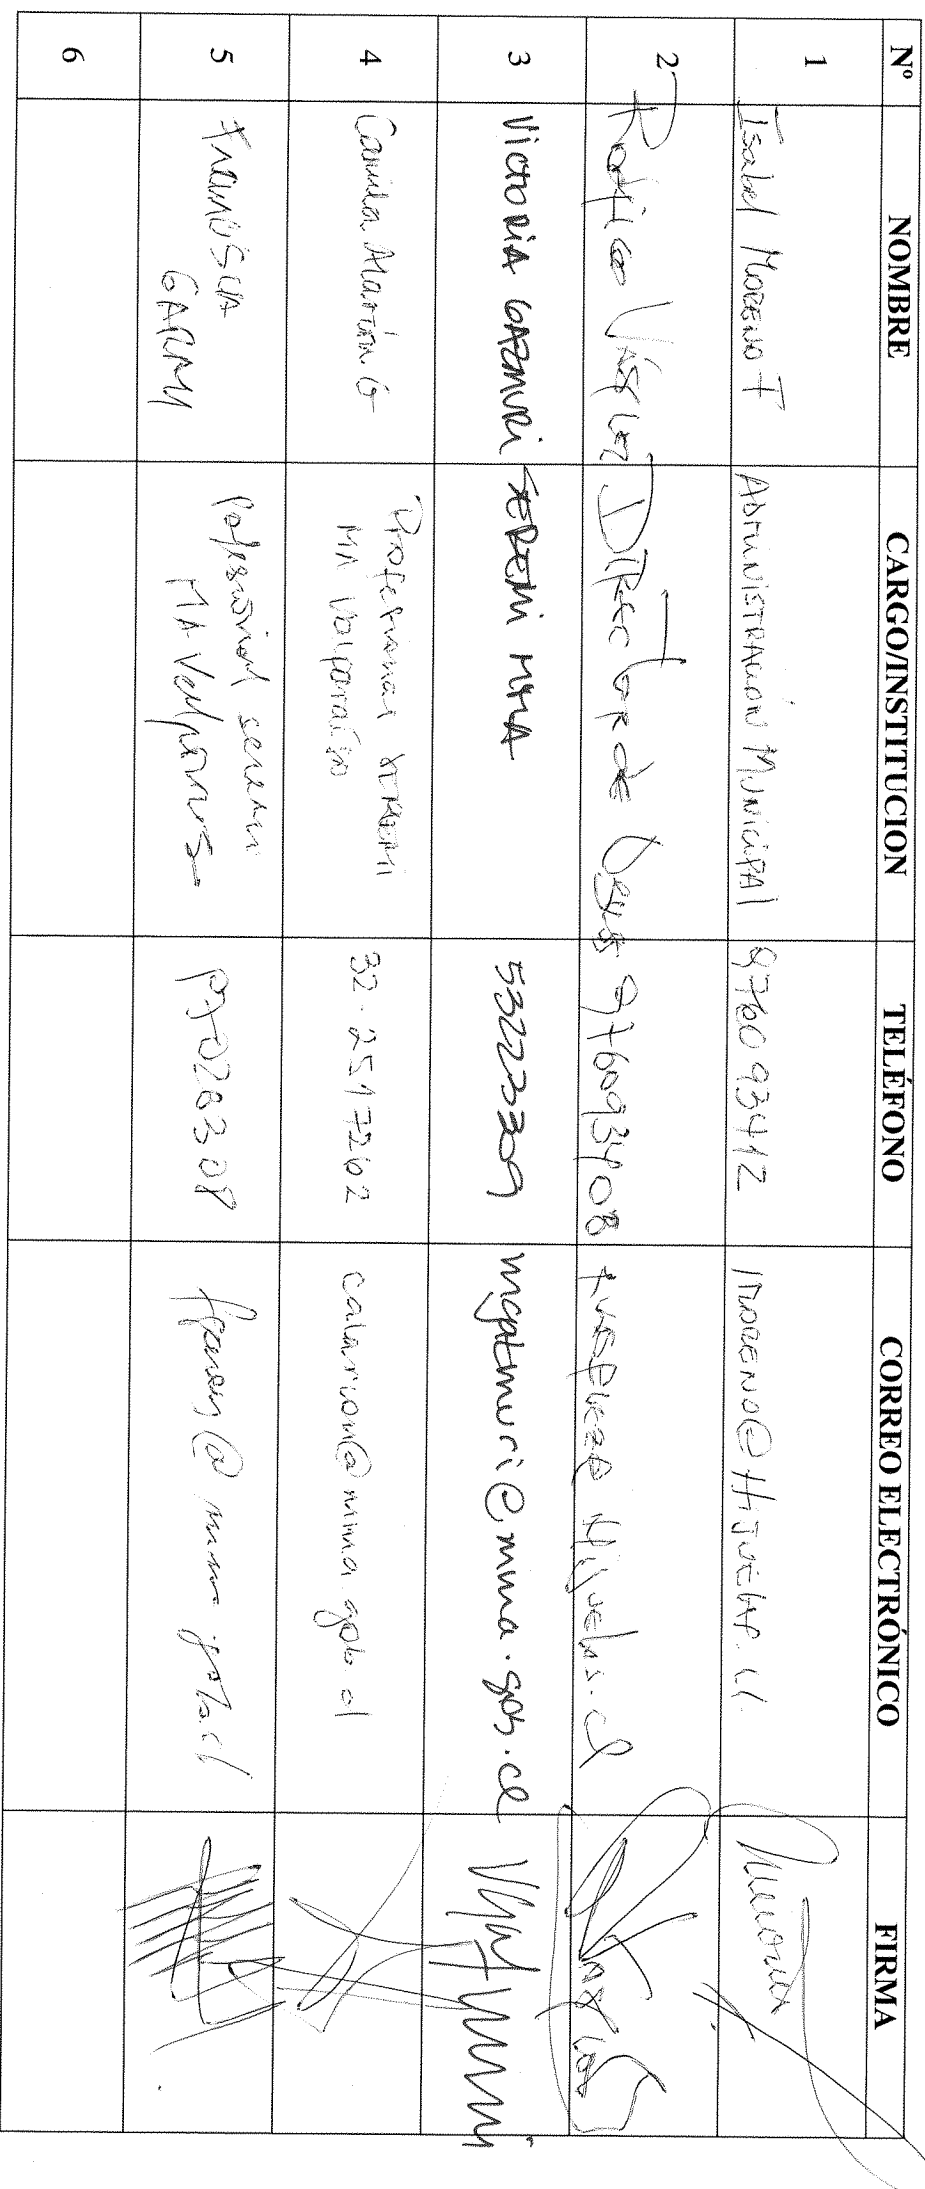 Nº NOMBRE CARGO/INSTITUCION TELÉFONO CORREO ELECTRÓNICO FIRMA
1 Isabel Moreno F Administración Municipal 976093412 imoreno@Hijuelas.cl
2 Rodrigo Vásquez Director de 976093408 Hijuelas.cl
3 VICTORIA GAZMURI SEREMI MMA 53222309 mgatmuri@mma.gob.cl
4 Camila Alarcón G Profesional SEREMI
MA Valparaíso 32-2517262 calarcon@mma.gob.cl
5 Francisca
Profesional seremi
MA Valparaíso
6